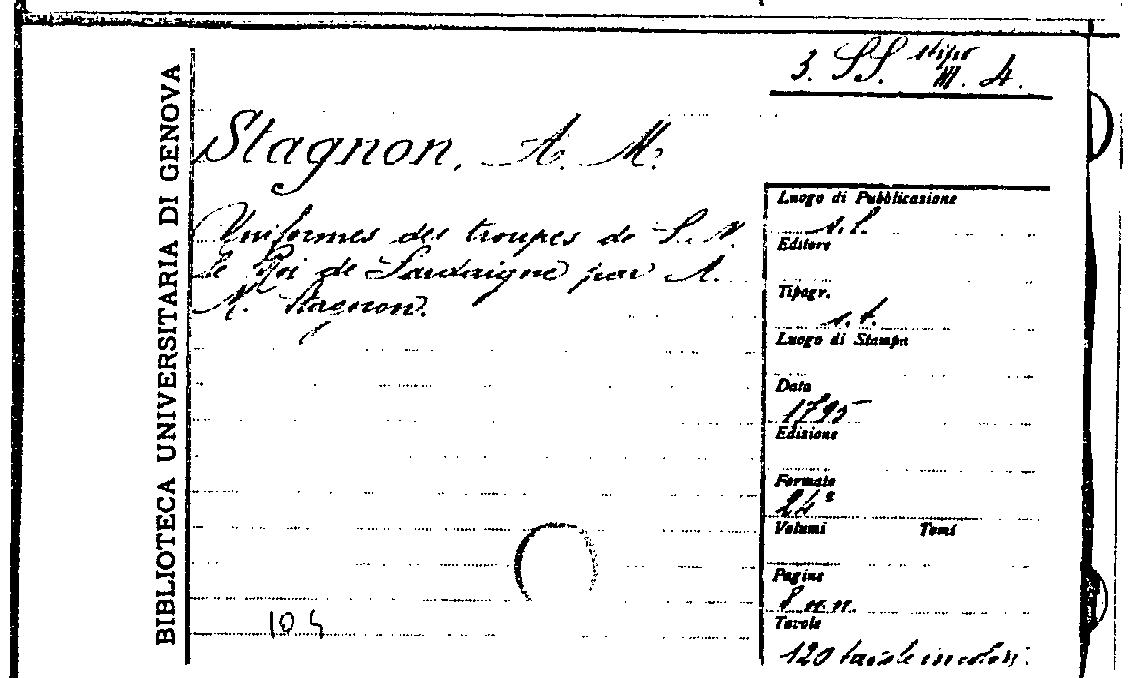 3. SS. stipo
III. 4.
BIBLIOTECA UNIVERSITARIA DI GENOVA
Stagnon, A. M.
Uniformes des troupes de S. M.
le Roi de Sardaigne par A.
M. Stagnon.
Luogo di Pubblicazione
s. l.
Editore
Tipogr.
s. t.
Luogo di Stampa
Data
1795
Edizione
Formato
24°
Volumi Tomi
Pagine
8 n.n.
Tavole
120 tavole in colori.
104